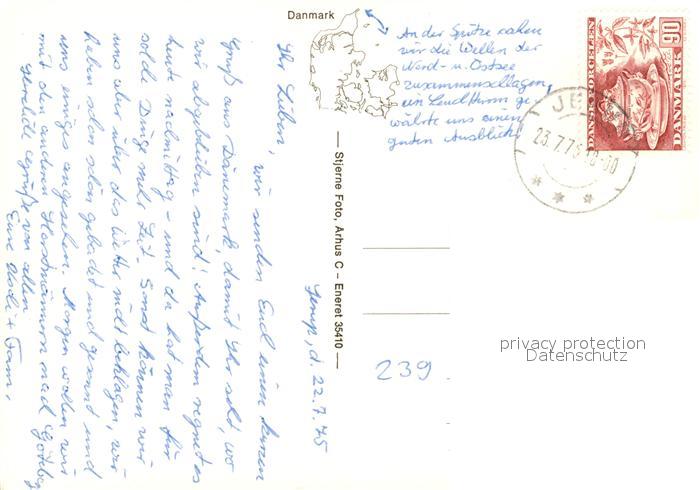 Danmark
An der Spitze sahen
wir die Wellen der
Nord- u. Ostsee
zusammenschlagen,
ein Leuchtturm ge
währte uns einen
guten Ausblick!
DANSK FORGLEMMEN
DANMARK
90
JE
23.7.75
Jerup, d. 22.7.75
Ihr Lieben,
wir senden Euch einen kurzen
Gruß aus Dänemark, damit Ihr seht, wo
wir abgeblieben sind! Außerdem regnet es
heute nachmittag - und da hat man für
solche Dinge mehr Zeit. Sonst können wir
uns aber über das Wetter nicht beklagen, wir
haben schon schön gebadet und gesonnt und
uns einiges angesehen. Morgen wollen wir
mit den anderen nach Göteborg
Herzliche Grüße von allen
Eure + Fam.
Stjerne Foto, Århus C – Eneret 35410
239
privacy protection
Datenschutz